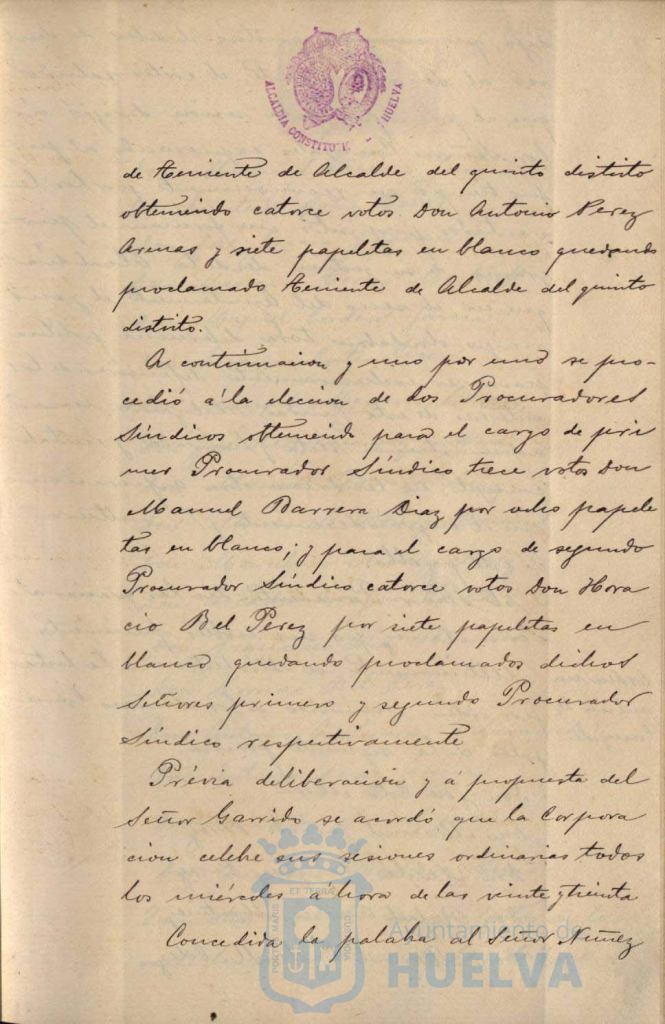 ALCALDIA CONSTITU HUELVA
de Teniente de Alcalde del quinto distrito
obteniendo catorce votos Don Antonio Perez
Arenas y siete papeletas en blanco quedando
proclamado Teniente de Alcalde del quinto
distrito.
A continuacion y uno por uno se pro-
cedió á la eleccion de dos Procuradores
Síndicos obteniendo para el cargo de pri
mer Procurador Síndico trece votos Don
Manuel Barrera Diaz por ocho papele
tas en blanco; y para el cargo de segundo
Procurador Síndico catorce votos Don Hora
cio Bel Perez por siete papeletas en
blanco quedando proclamados dichos
Señores primero y segundo Procurador
Síndico respectivamente
Prévia deliberación y á propuesta del
Señor Garrido se acordó que la Corpora
cion celebre sus sesiones ordinarias todos
los miércoles á hora de las veinte y treinta
Concedida la palabra al Señor Nuñez
Ayuntamiento de
HUELVA